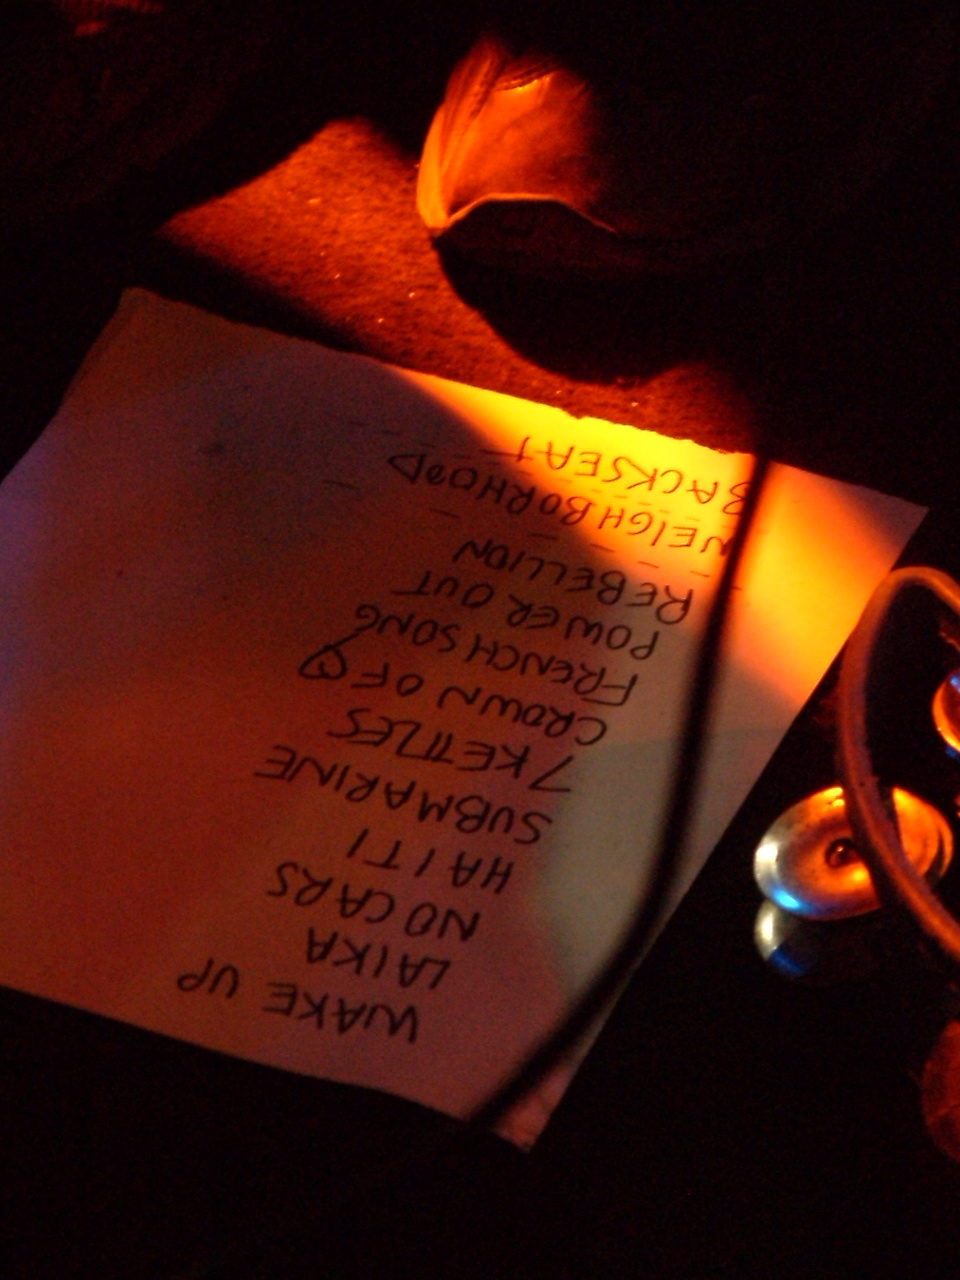 WAKE UP
LAIKA
NO CARS
HAITI
SUBMARINE
7 KETTLES
CROWN OF ♡
FRENCH SONG
POWER OUT
REBELLION
NEIGHBORHOOD
BACKSEAT